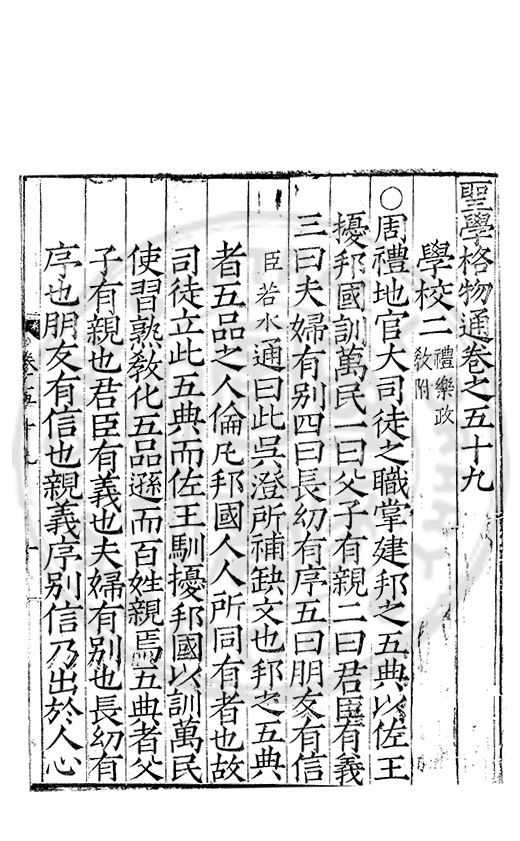 聖學格物通卷之五十九
學校二禮樂政教附
○周禮地官大司徒之職掌建邦之五典以佐王
擾邦國訓萬民一曰父子有親二曰君臣有義
三曰夫婦有别四曰長幼有序五曰朋友有信
臣若水通曰此吳澄所補缺文也邦之五典
者五品之人倫凡邦國人人所同有者也故
司徒立此五典而佐王馴擾邦國以訓萬民
使習熟教化五品遜而百姓親焉五典者父
子有親也君臣有義也夫婦有别也長幼有
序也朋友有信也親義序别信乃出於人心
卷五十九